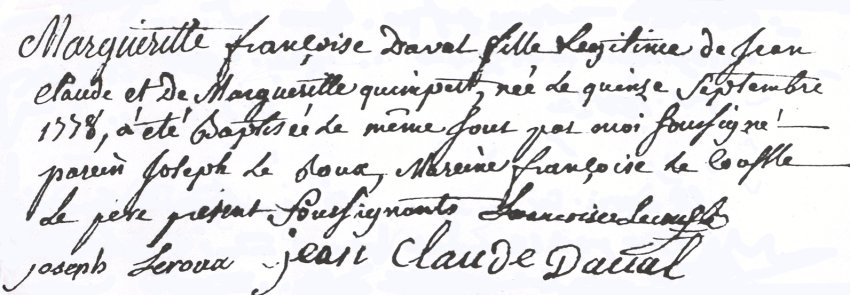 Margueritte françoise Daval fille Legitime de Jean
claude et De Margueritte quimpert, née Le quinze Septembre
1778, a été Baptisée Le même Jour par moi soussigné
parein Joseph Le Roux, Mareine françoise
Le père présent soussignants françoise
joseph Leroux jean Claude Daval